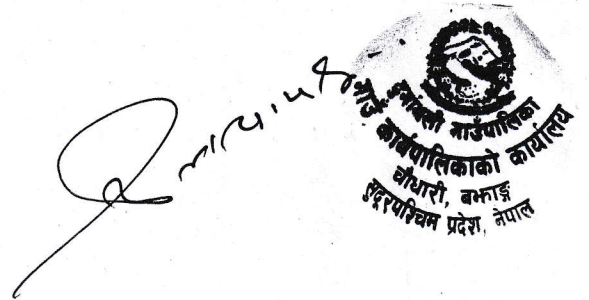 दुर्गाथली गाउँपालिका
गाउँ कार्यपालिकाको कार्यालय
चौधारी, बझाङ्ग
सुदूरपश्चिम प्रदेश, नेपाल